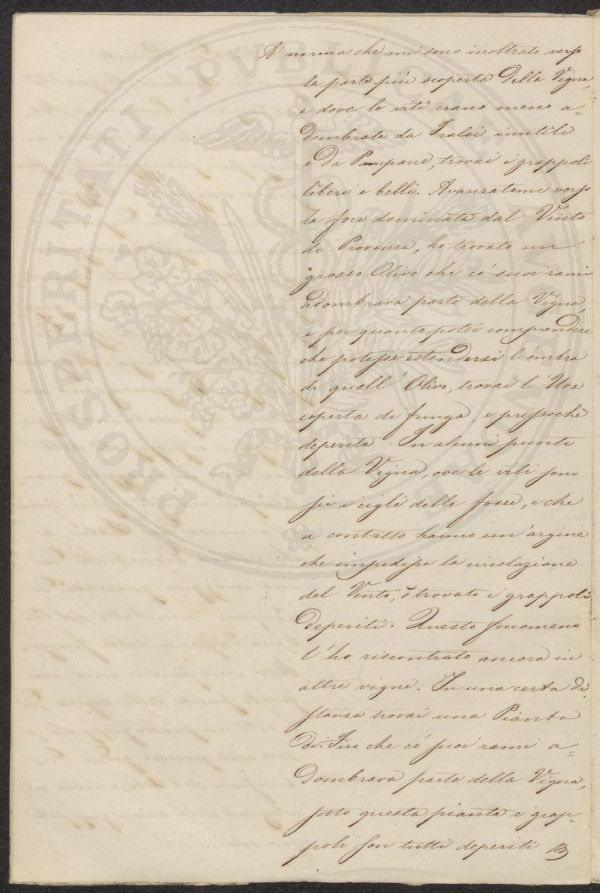 A norma che mi sono inoltrato verso
la parte più scoperta della Vigna,
e dove le viti erano meno a-
dombrate da Tralci inutili
e da Pampane, trovai i grappoli
liberi e belli. Avanzatomi verso
la foce dominata dal Vento
di Provenza, ho trovato un
grosso Olivo che co' suoi rami
adombrava parte della Vigna,
e per quanto potei comprendere
che potesse estendersi l'ombra
di quell' Olivo, trovai l'Uva
coperta di funga, e pressochè
deperita. In alcuni punti
della Vigna, ove le viti sono
su i cigli delle fosse, e che
a contatto hanno un'argine
che impedisse la circolazione
del Vento, ò trovato i grappoli
deperiti. Questo fenomeno
l'ho riscontrato ancora in
altre vigne. In una certa di-
stanza trovai una Pianta
di Fico che co' suoi rami a-
dombrava parte della Vigna,
sotto questa pianta i grap-
poli son tutti deperiti
PROSPERITATI PUBLICAE